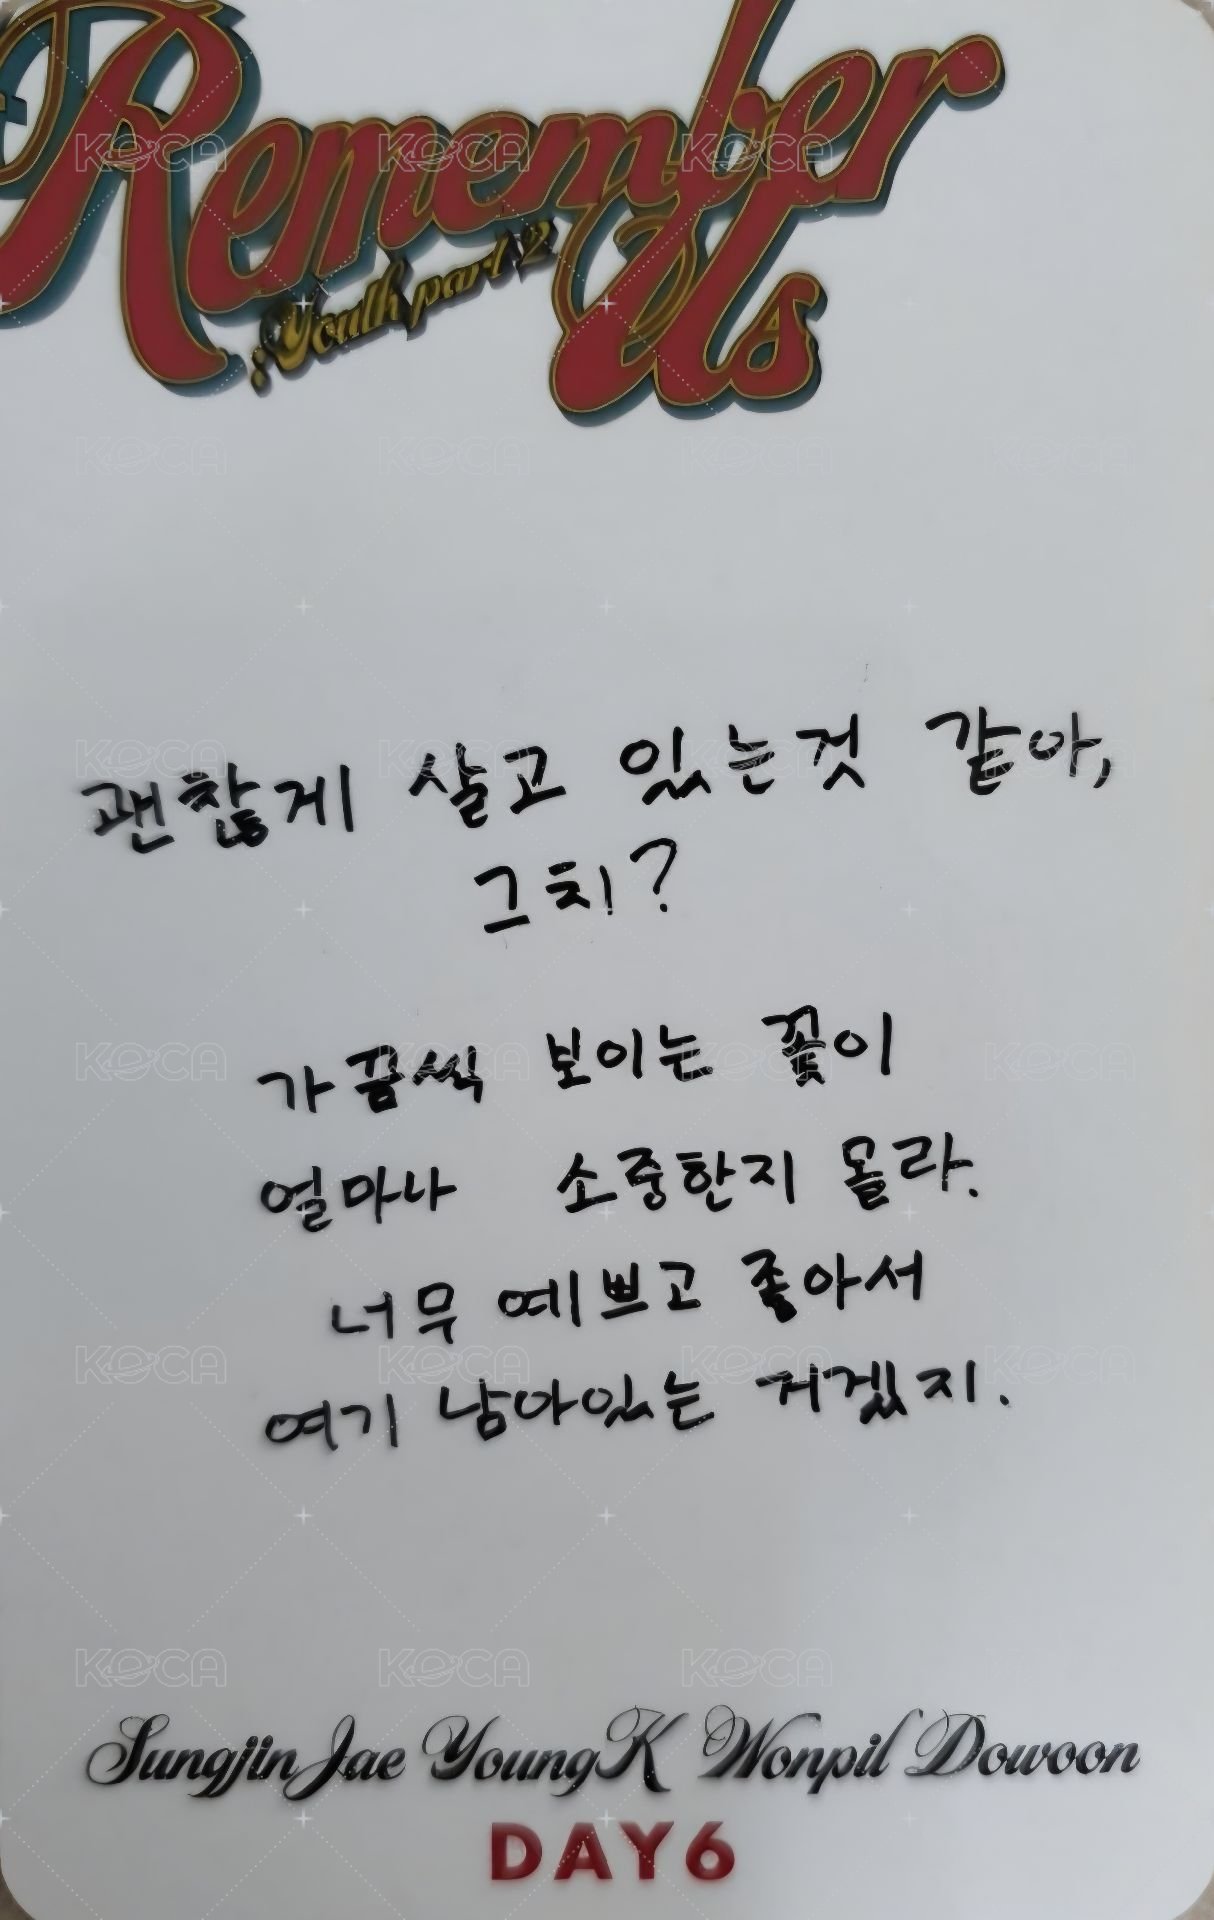 Remember
Us
: Youth part 2
괜찮게 살고 있는것 같아,
그치?
가끔씩 보이는 꽃이
얼마나 소중한지 몰라.
너무 예쁘고 좋아서
여기 남아있는 거겠지.
Sungjin Jae YoungK Wonpil Dowoon
DAY6
KOCA